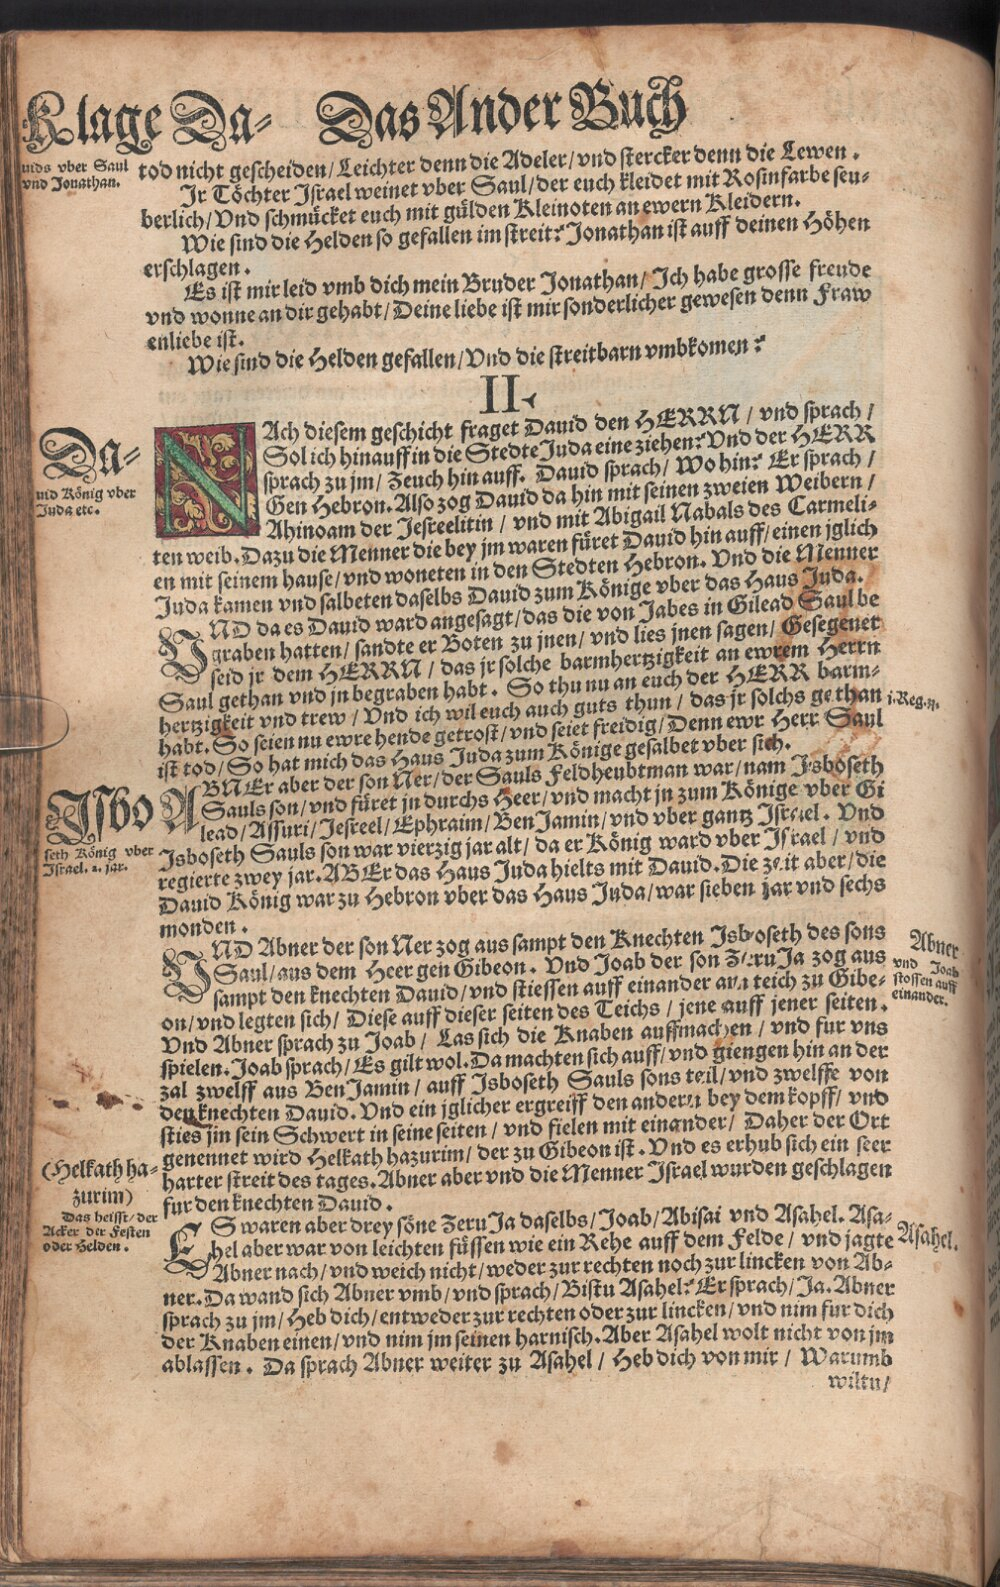 Klage Da-
uids vber Saul
vnd Jonathan.
Das Ander Buch
tod nicht gescheiden/ Leichter denn die Adeler/ vnd stercker denn die Lewen.
Jr Töchter Jsrael weinet vber Saul/ der euch kleidet mit Rosinfarbe seu-
berlich/ Vnd schmücket euch mit gülden Kleinoten an ewern Kleidern.
Wie sind die Helden so gefallen im streit? Jonathan ist auff deinen Höhen
erschlagen.
Es ist mir leid vmb dich mein Bruder Jonathan/ Jch habe grosse freude
vnd wonne an dir gehabt/ Deine liebe ist mir sonderlicher gewesen denn Fraw
enliebe ist.
Wie sind die Helden gefallen/ Vnd die streitbarn vmbkomen?
II.
Da-
uid König vber
Juda etc.
NAch diesem geschicht fraget Dauid den HERRN/ vnd sprach/
Sol ich hinauff in die Stedte Juda eine ziehen? Vnd der HERR
sprach zu jm/ Zeuch hin auff. Dauid sprach/ Wo hin? Er sprach/
Gen Hebron. Also zog Dauid da hin mit seinen zweien Weibern/
Ahinoam der Jesreelitin/ vnd mit Abigail Nabals des Carmeli-
ten weib. Dazu die Menner die bey jm waren füret Dauid hin auff/ einen jglich
en mit seinem hause/ vnd woneten in den Stedten Hebron. Vnd die Menner
Juda kamen vnd salbeten daselbs Dauid zum Könige vber das Haus Juda.
VND da es Dauid ward angesagt/ das die von Jabes in Gilead Saul be
graben hatten/ sandte er Boten zu jnen/ vnd lies jnen sagen/ Gesegenet
seid jr dem HERRN/ das jr solche barmhertzigkeit an ewrem Herrn
Saul gethan vnd jn begraben habt. So thu nu an euch der HERR barm-
hertzigkeit vnd trew/ Vnd ich wil euch auch guts thun/ das jr solchs gethan
habt. So seien nu ewre hende getrost/ vnd seiet freidig/ Denn ewr Herr Saul
ist tod/ So hat mich das Haus Juda zum Könige gesalbet vber sich.
Jsbo
seth König vber
Jsrael. 2. jar.
ABNEr aber der son Ner/ der Sauls Feldheubtman war/ nam Jsboseth
Sauls son/ vnd füret jn durchs Heer/ vnd macht jn zum Könige vber Gi
lead/ Assuri/ Jesreel/ Ephraim/ BenJamin/ vnd vber gantz Jsrael. Vnd
Jsboseth Sauls son war vierzig jar alt/ da er König ward vber Jsrael/ vnd
regierte zwey jar. ABEr das Haus Juda hielts mit Dauid. Die zeit aber/ die
Dauid König war zu Hebron vber das Haus Juda/ war sieben jar vnd sechs
monden.
VND Abner der son Ner zog aus sampt den Knechten Jsboseth des sons
Saul/ aus dem Heer gen Gibeon. Vnd Joab der son ZeruJa zog aus
sampt den knechten Dauid/ vnd stiessen auff einander am teich zu Gibe-
on/ vnd legten sich/ Diese auff dieser seiten des Teichs/ jene auff jener seiten.
Vnd Abner sprach zu Joab/ Las sich die Knaben auffmachen/ vnd fur vns
spielen. Joab sprach/ Es gilt wol. Da machten sich auff/ vnd giengen hin an der
zal zwelff aus BenJamin/ auff Jsboseth Sauls sons teil/ vnd zwelffe von
den knechten Dauid. Vnd ein jglicher ergreiff den andern bey dem kopff/ vnd
sties jm sein Schwert in seine seiten/ vnd fielen mit einander/ Daher der Ort
genennet wird Helkath hazurim/ der zu Gibeon ist. Vnd es erhub sich ein seer
harter streit des tages. Abner aber vnd die Menner Jsrael wurden geschlagen
fur den knechten Dauid.
Abner
vnd Joab
stossen auff
einander.
(Helkath ha-
zurim)
Das heisst/ der
Acker der Festen
oder Helden.
ES waren aber drey söne ZeruJa daselbs/ Joab/ Abisai vnd Asahel. Asa-
hel aber war von leichten füssen wie ein Rehe auff dem Felde/ vnd jagte
Abner nach/ vnd weich nicht/ weder zur rechten noch zur lincken von Ab-
ner. Da wand sich Abner vmb/ vnd sprach/ Bistu Asahel? Er sprach/ Ja. Abner
sprach zu jm/ Heb dich/ entweder zur rechten oder zur lincken/ vnd nim fur dich
der Knaben einen/ vnd nim jm seinen harnisch. Aber Asahel wolt nicht von jm
ablassen. Da sprach Abner weiter zu Asahel/ Heb dich von mir/ Warumb
wiltu/
Asahel.